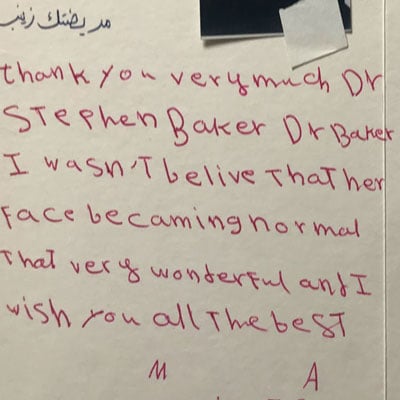 مريضتك زينب
thank you very much Dr
STephen Baker Dr Baker
I wasn'T belive ThaT her
Face becaming normal
That very wonderful and I
wish you all The besT
M A